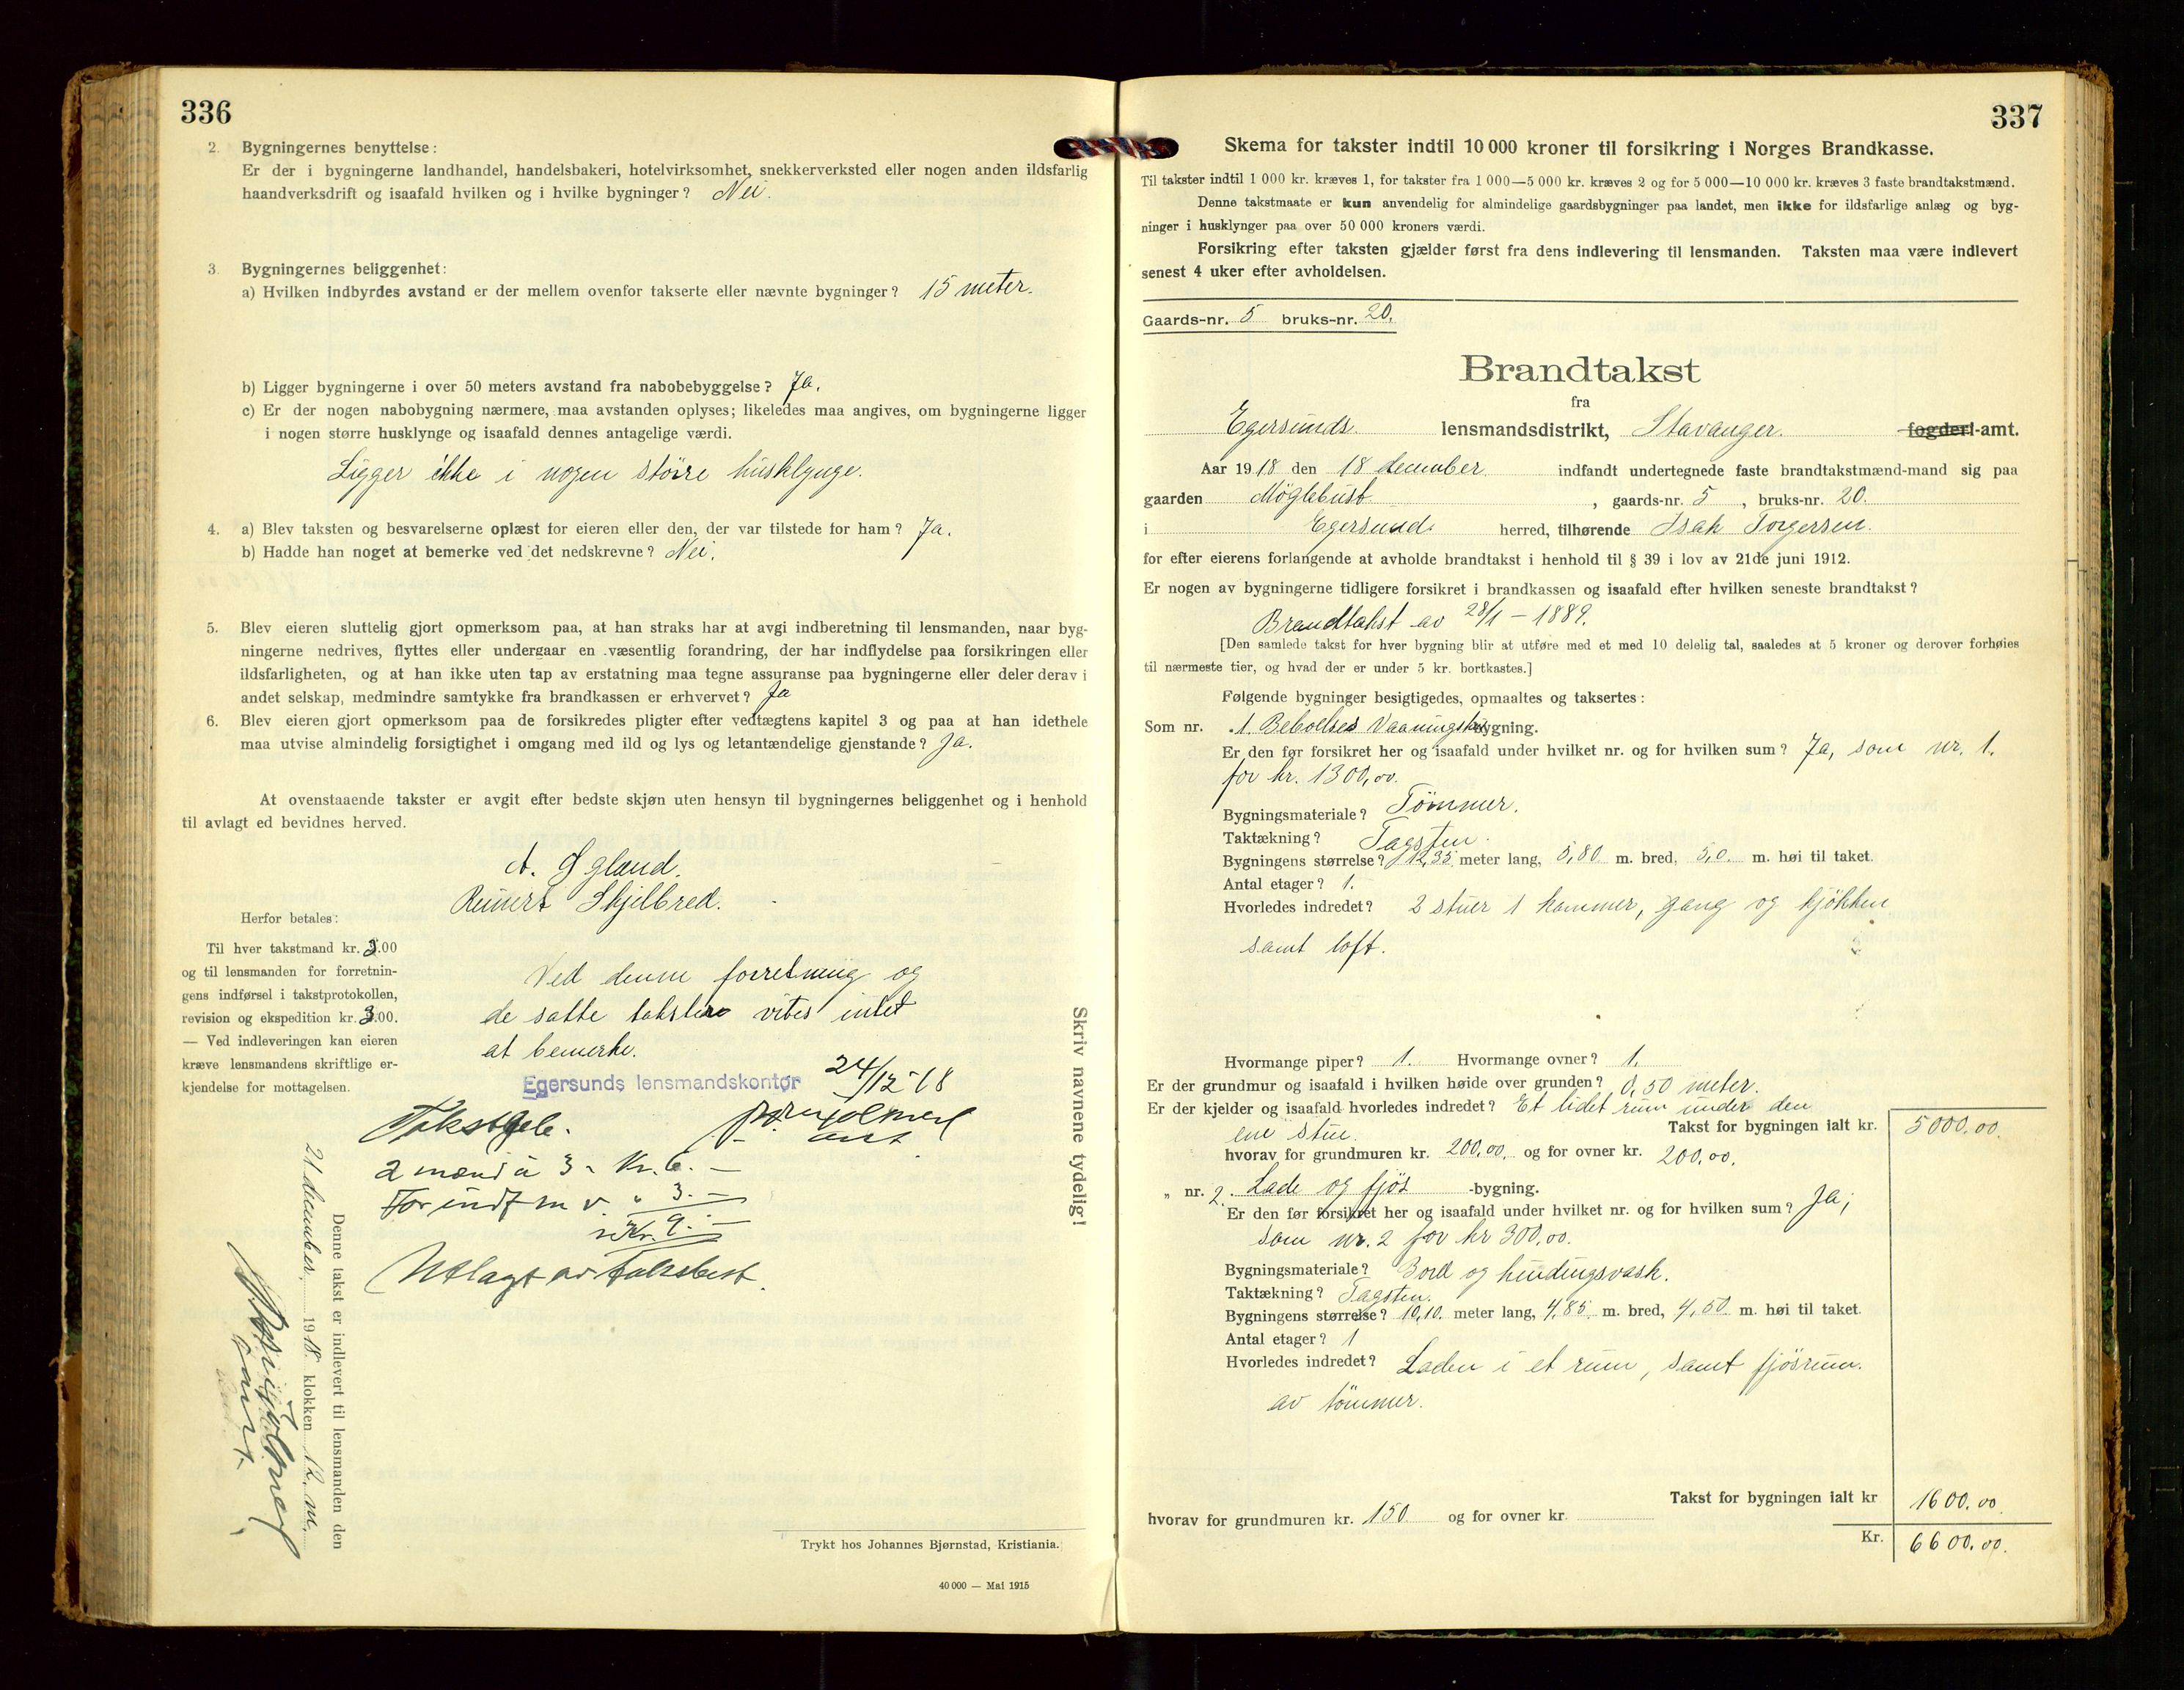 336
2. Bygningernes benyttelse:
Er der i bygningerne landhandel, handelsbakeri, hotelvirksomhet, snekkerverksted eller nogen anden ildsfarlig
haandverksdrift og isaafald hvilken og i hvilke bygninger? Nei.
3. Bygningernes beliggenhet:
a) Hvilken indbyrdes avstand er der mellem ovenfor takserte eller nævnte bygninger? 15 meter.
b) Ligger bygningerne i over 50 meters avstand fra nabobebyggelse? Ja.
c) Er der nogen nabobygning nærmere, maa avstanden oplyses; likeledes maa angives, om bygningerne ligger
i nogen større husklynge og isaafald dennes antagelige værdi.
Ligger ikke i nogen större husklynge.
4. a) Blev taksten og besvarelserne oplæst for eieren eller den, der var tilstede for ham? Ja.
b) Hadde han noget at bemerke ved det nedskrevne? Nei.
5. Blev eieren sluttelig gjort opmerksom paa, at han straks har at avgi indberetning til lensmanden, naar byg-
ningerne nedrives, flyttes eller undergaar en væsentlig forandring, der har indflydelse paa forsikringen eller
ildsfarligheten, og at han ikke uten tap av erstatning maa tegne assuranse paa bygningerne eller deler derav i
andet selskap, medmindre samtykke fra brandkassen er erhvervet? Ja
6. Blev eieren gjort opmerksom paa de forsikredes pligter efter vedtægtens kapitel 3 og paa at han idethele
maa utvise almindelig forsigtighet i omgang med ild og lys og letantændelige gjenstande? Ja.
At ovenstaaende takster er avgit efter bedste skjøn uten hensyn til bygningernes beliggenhet og i henhold
til avlagt ed bevidnes herved.
Reinert Skjelbred.
Herfor betales:
Til hver takstmand kr. 3.00
og til lensmanden for forretnin-
gens indførsel i takstprotokollen,
revision og ekspedition kr. 3.00.
— Ved indleveringen kan eieren
kræve lensmandens skriftlige er-
kjendelse for mottagelsen.
Ved denne forretning og
de satte takster vites intet
at bemerke.
Egersunds lensmandskontor 24/12-18
2 mænd á 3 - Kr. 6. —
For indf m v. " 3. —
Kr. 9. —
Utlagt av
Denne takst er indlevert til lensmanden den
21 december 1918. klokken 12. m.
Skriv navnene tydelig!
Trykt hos Johannes Bjørnstad, Kristiania.
40 000 — Mai 1915
337
Skema for takster indtil 10 000 kroner til forsikring i Norges Brandkasse.
Til takster indtil 1 000 kr. kræves 1, for takster fra 1 000—5 000 kr. kræves 2 og for 5 000—10 000 kr. kræves 3 faste brandtakstmænd.
Denne takstmaate er kun anvendelig for almindelige gaardsbygninger paa landet, men ikke for ildsfarlige anlæg og byg-
ninger i husklynger paa over 50 000 kroners værdi.
Forsikring efter taksten gjælder først fra dens indlevering til lensmanden. Taksten maa være indlevert
senest 4 uker efter avholdelsen.
Gaards-nr. 5 bruks-nr. 20.
Brandtakst
fra
Egersunds lensmandsdistrikt, Stavanger. fogderi-amt.
Aar 1918 den 18 december indfandt undertegnede faste brandtakstmænd-mand sig paa
gaarden Möglebust, gaards-nr. 5, bruks-nr. 20.
i Egersund herred, tilhørende Isak Torgersen.
for efter eierens forlangende at avholde brandtakst i henhold til § 39 i lov av 21de juni 1912.
Er nogen av bygningerne tidligere forsikret i brandkassen og isaafald efter hvilken seneste brandtakst?
Brandtakst av 28/1 - 1889.
[Den samlede takst for hver bygning blir at utføre med et med 10 delelig tal, saaledes at 5 kroner og derover forhøies
til nærmeste tier, og hvad der er under 5 kr. bortkastes.]
Følgende bygninger besigtigedes, opmaaltes og taksertes:
Som nr. 1. Beboelses Vaaningshusbygning.
Er den før forsikret her og isaafald under hvilket nr. og for hvilken sum? Ja, som nr. 1.
for kr. 1300,00.
Bygningsmateriale? Tömmer.
Taktækning? Tagsten.
Bygningens størrelse? 12,35 meter lang, 5,80 m. bred, 5,0. m. høi til taket.
Antal etager? 1.
Hvorledes indredet? 2 stuer 1 kammer, gang og kjökken
samt loft.
Hvormange piper? 1. Hvormange ovner? 1.
Er der grundmur og isaafald i hvilken høide over grunden? 0,50 meter.
Er der kjelder og isaafald hvorledes indredet? Et lidet rum under den
ene stue.
Takst for bygningen ialt kr. 5000,00.
hvorav for grundmuren kr. 200,00. og for ovner kr. 200,00.
„ nr. 2. Lade og fjös -bygning.
Er den før forsikret her og isaafald under hvilket nr. og for hvilken sum? Ja,
som nr. 2 for kr 300,00.
Bygningsmateriale? Bord og bindingsværk.
Taktækning? Tagsten.
Bygningens størrelse? 10,10. meter lang, 4,85 m. bred, 4,50 m. høi til taket.
Antal etager? 1
Hvorledes indredet? Laden i et rum, samt fjösrum.
av tömmer.
Takst for bygningen ialt kr 1600,00
hvorav for grundmuren kr. 150 og for ovner kr.
Kr. 6600,00.